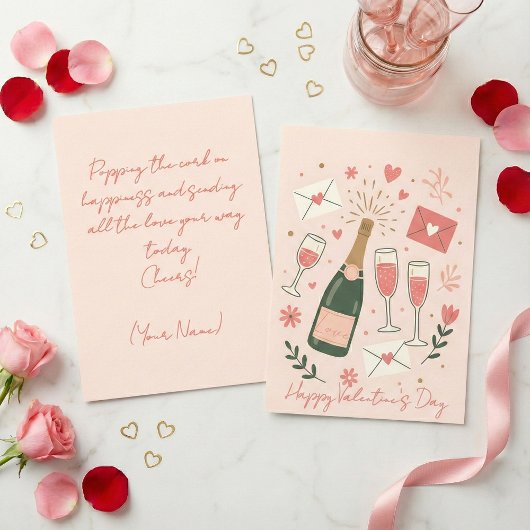 Popping the cork on
happiness and sending
all the love your way
today
Cheers!
(Your Name)
Love
Happy Valentine's Day